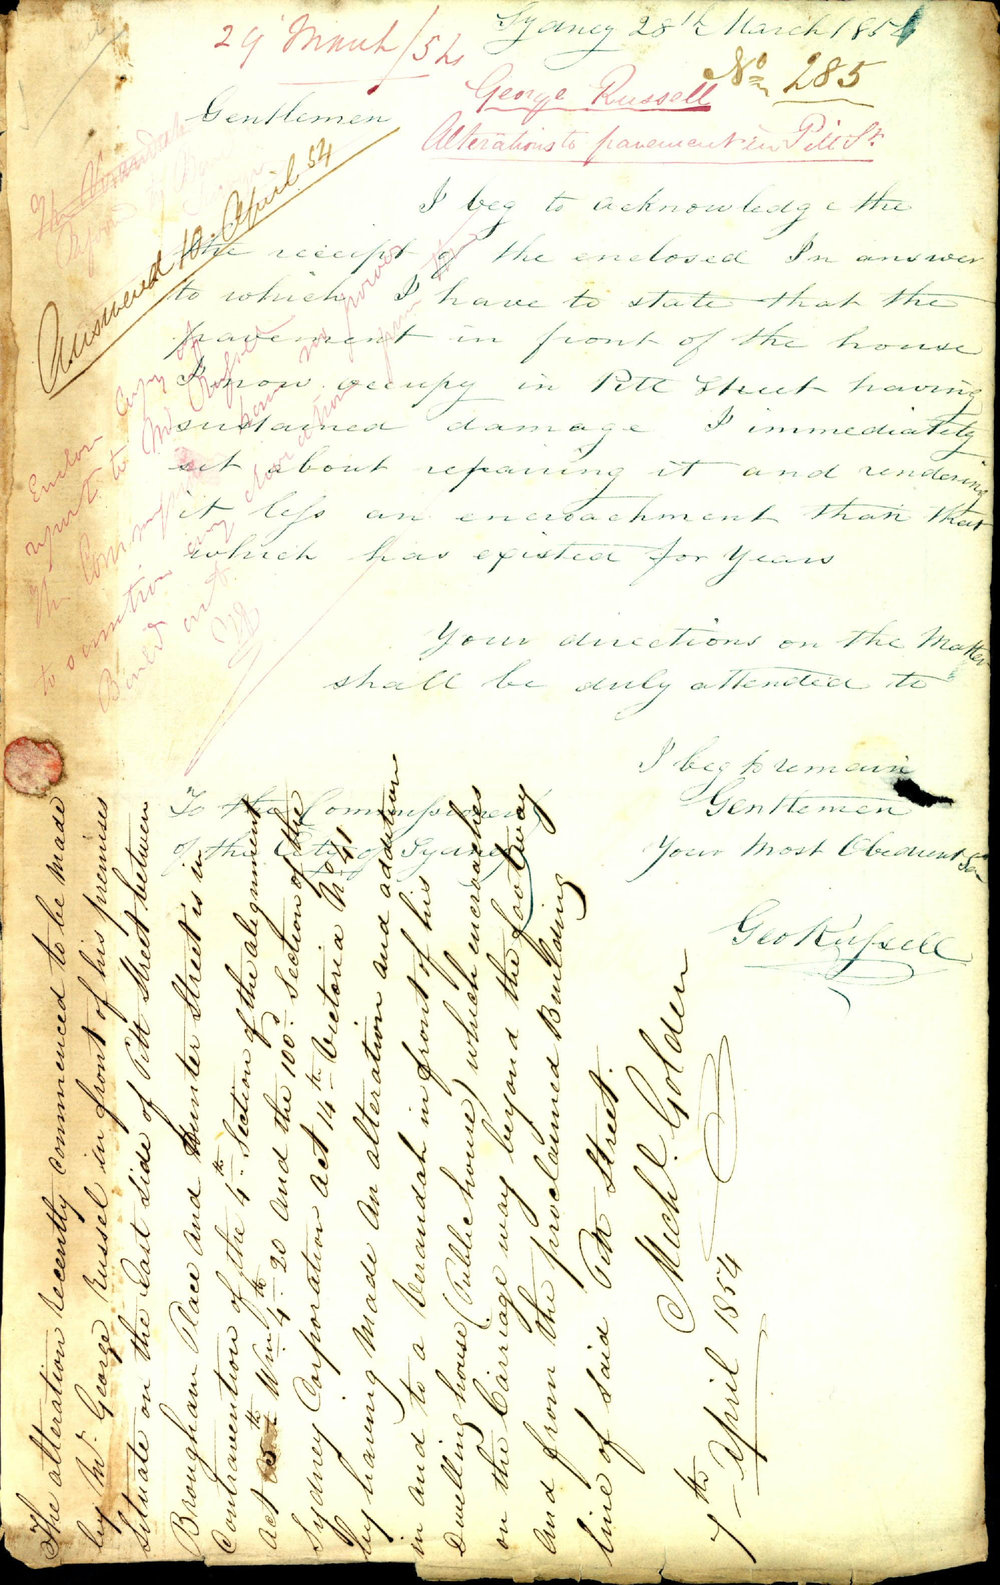 Sydney 28th March 1854
29 March/54
No 285
George Russell
Alterations to pavement in Pitt St.
Gentlemen
Answered 10. April. 54
I beg to acknowledge the
the receipt of the enclosed In answer
to which I have to state that the
pavement in front of the house
I now occupy in Pitt Street having
sustained damage I immediately
set about repairing it and rendering
it less an encroachment than that
which has existed for Years
Your directions on the Matter
shall be duly attended to
I beg to remain
Gentlemen
Your Most Obedient
Geo Russell
To the Commissioners
of the City of Sydney
Enclose Copy of
report to Mr Russel
The Commissrs have no power
to sanction any
Build
The alteration recently commenced to be made
by Mr. George Russel in front of his premises
situate on the East side of Pitt Street between
Brougham Place and Hunter Street is in
contravention of the 4th Section of the alignment
act 5th Wm 4th 20 and the 100d Section of the
Sydney Corporation act 14th Victoria No 41
by having made an alteration and addition
in and to a Verandah in front of his
Dwelling house (Public house) which encroaches
on the Carriage way beyond the footway
and from the proclaimed Building
line of said Pitt Street.
Michl. Golden
7th April 1854